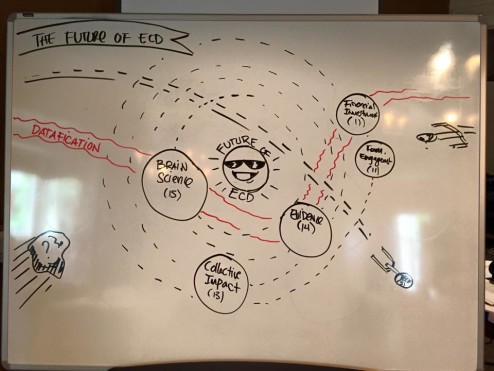 THE FUTURE OF ECD
DATAFICATION
BRAIN
Science
(15)
FUTURE OF
ECD
EVIDENCE
(14)
Financial
Investment
(11)
Engagement
(11)
Collective
Impact
(13)
??